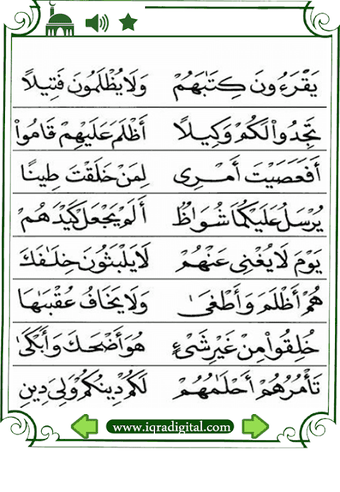 يَقْرَءُونَ كِتَٰبَهُمْ وَلَا يُظْلَمُونَ فَتِيلًا
تَجِدُوا۟ لَكُمْ وَكِيلًا أَظْلَمَ عَلَيْهِمْ قَامُوا۟
أَفَعَصَيْتَ أَمْرِى لِمَنْ خَلَقْتَ طِينًا
يُرْسَلُ عَلَيْكُمَا شُوَاظٌ أَلَمْ يَجْعَلْ كَيْدَهُمْ
يَوْمَ لَا يُغْنِى عَنْهُمْ لَا يَلْبَثُونَ خِلَٰفَكَ
هُمْ أَظْلَمَ وَأَطْغَىٰ وَلَا يَخَافُ عُقْبَٰهَا
خُلِقُوا۟ مِنْ غَيْرِ شَىْءٍ هُوَ أَضْحَكَ وَأَبْكَىٰ
تَأْمُرُهُمْ أَحْلَٰمُهُمْ لَكُمْ دِينُكُمْ وَلِىَ دِينِ
www.iqradigital.com